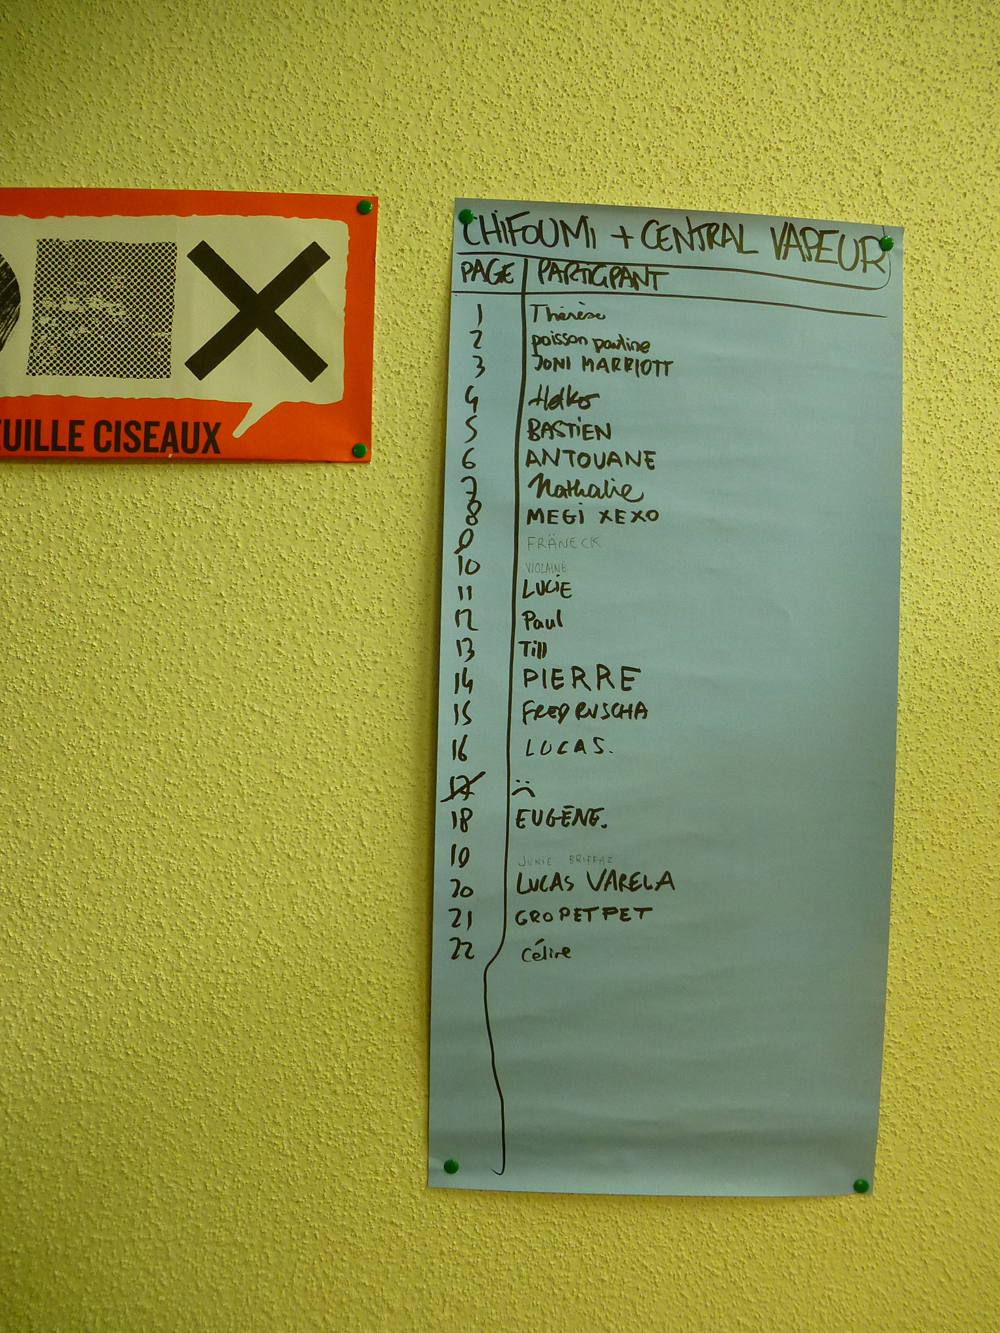 EUILLE CISEAUX
CHIFOUMI + CENTRAL VAPEUR
PAGE PARTICIPANT
1 Thérèse
2 poisson pauline
3 JONI MARRIOTT
4
5 BASTIEN
6 ANTOUANE
7 Nathalie
8 MEGI XEXO
9 FRÄNECK
10 VIOLAINE
11 LUCIE
12 Paul
13 Till
14 PIERRE
15 FRED RUSCHA
16 LUCAS.
17 :(
18 EUGÈNE.
19 JUNIE BRIFFAZ
20 LUCAS VARELA
21 GROPETPET
22 Céline